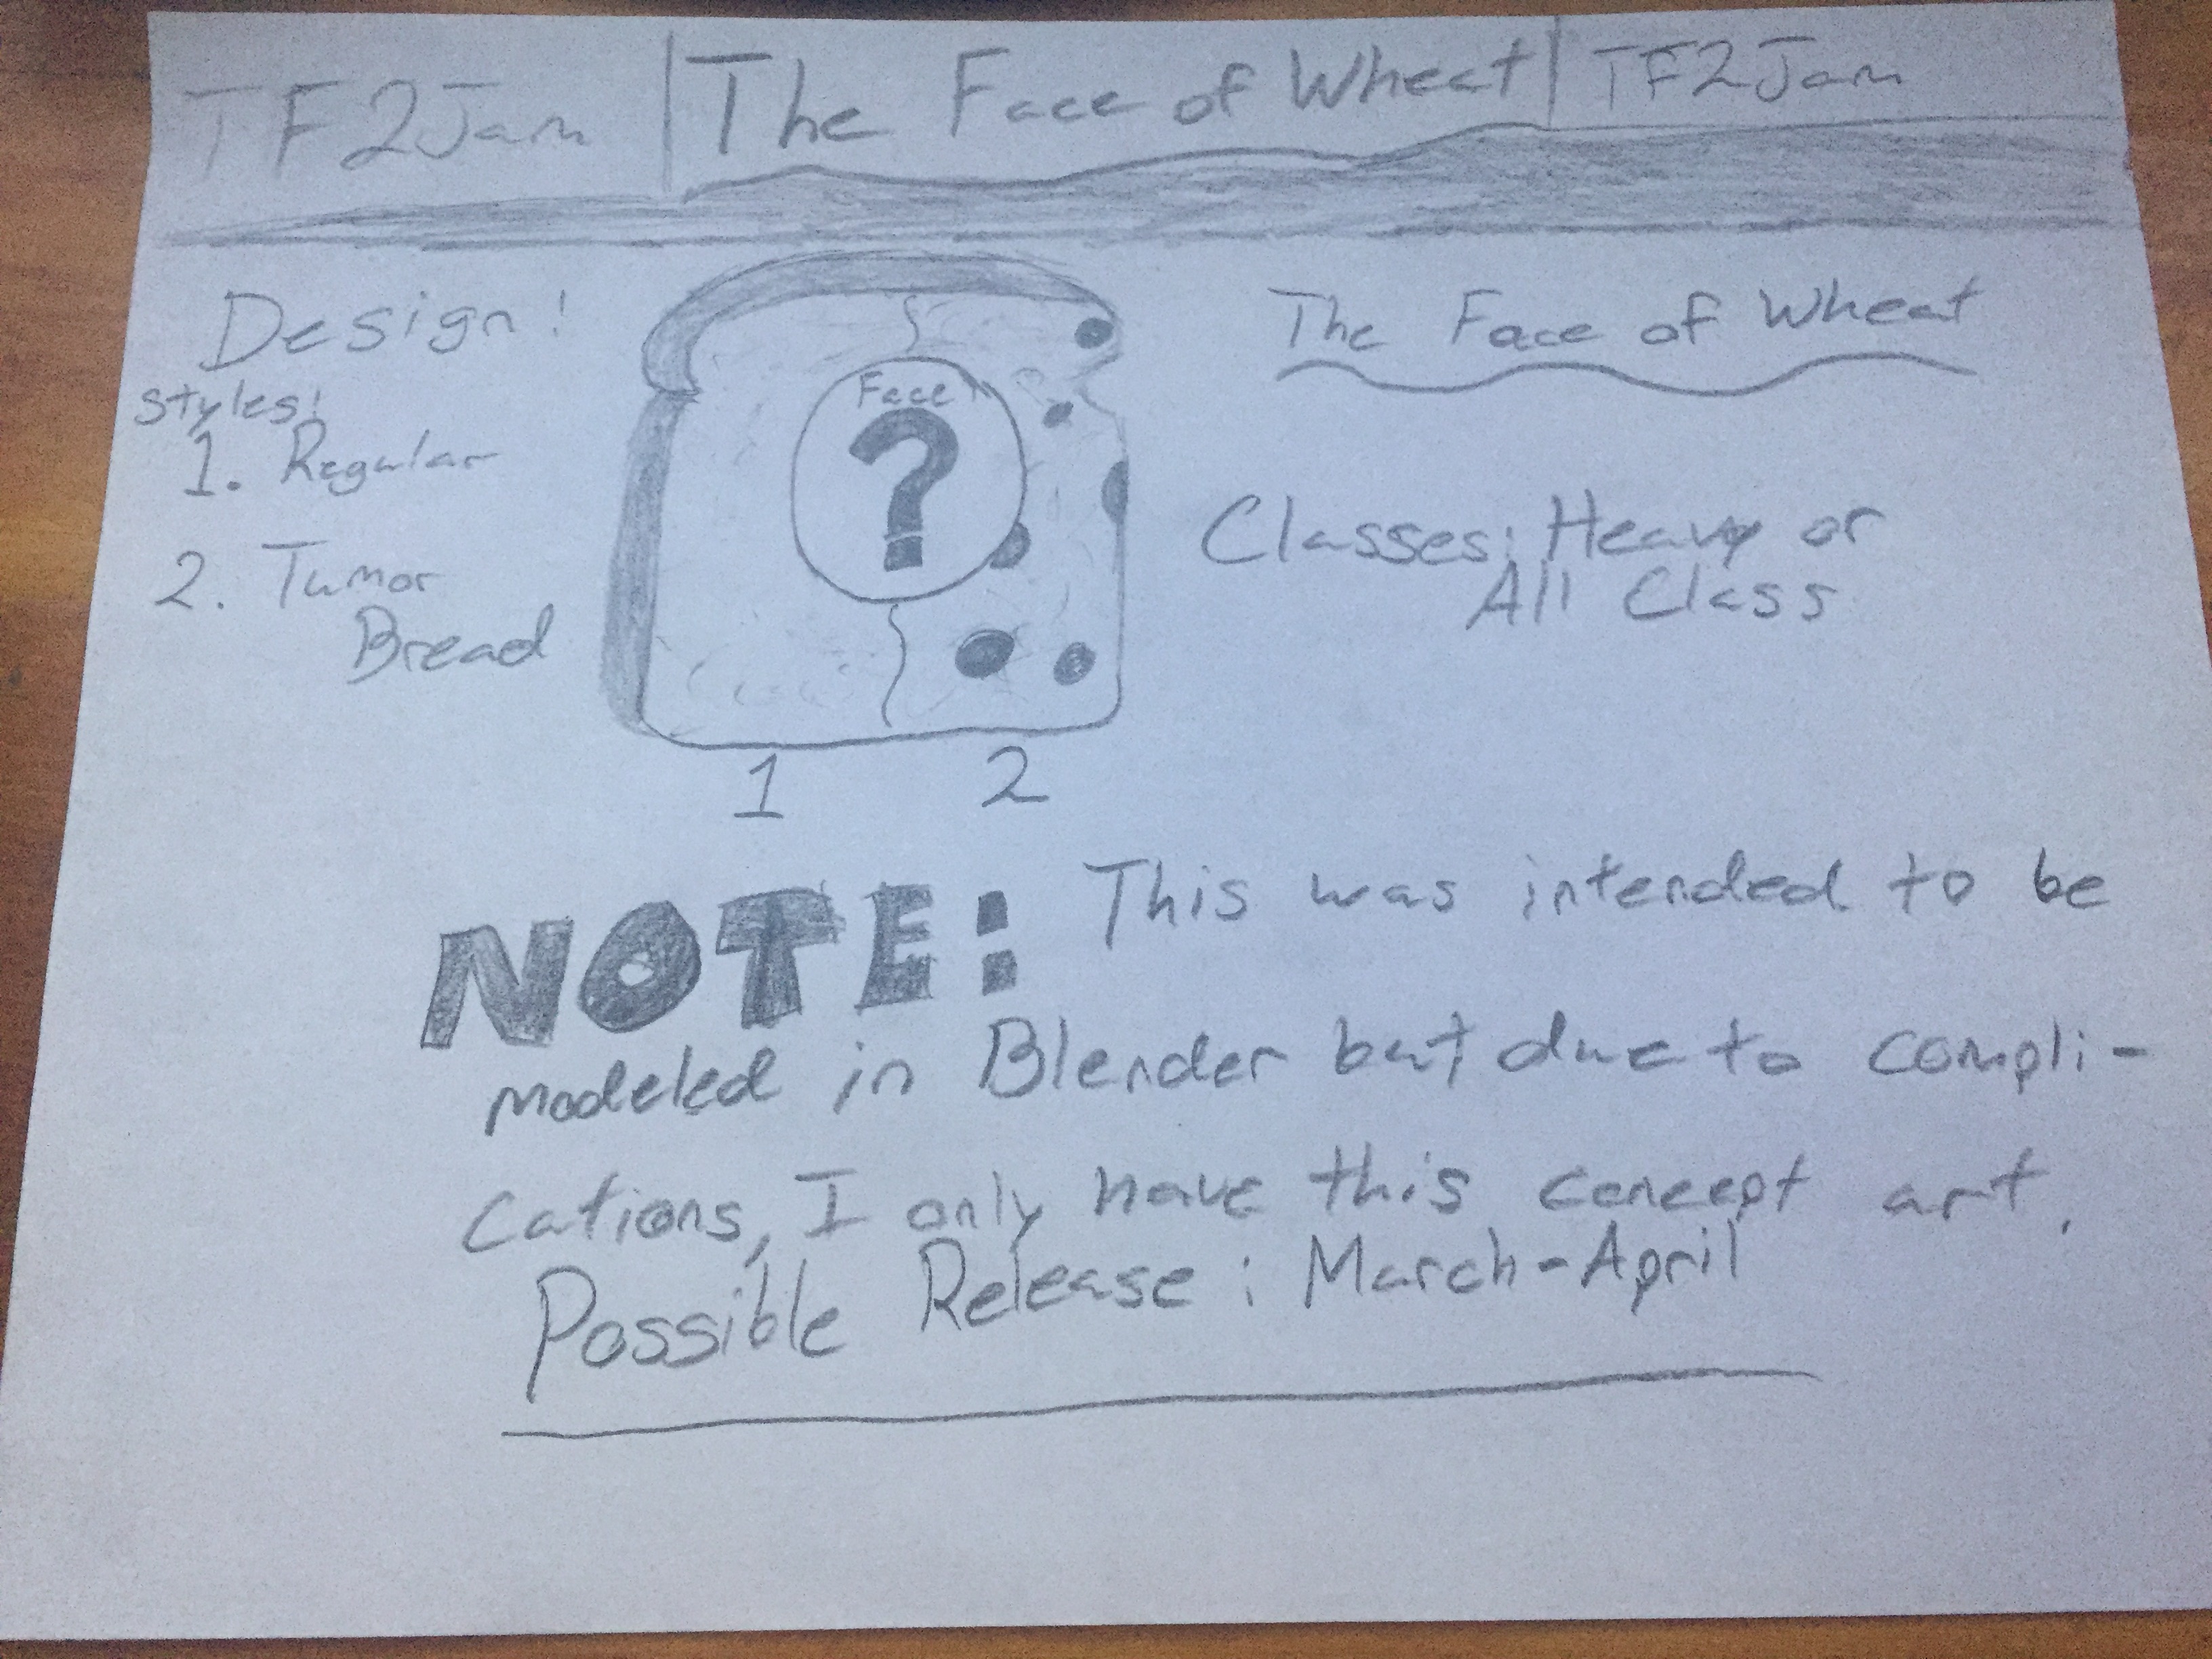 TF2Jam | The Face of Wheat | TF2Jam
Design:
Styles:
1. Regular
2. Tumor
Bread
Face
?
1 2
The Face of Wheat
Classes: Heavy or
All Class
NOTE: This was intended to be
modeled in Blender but due to compli-
cations, I only have this concept art.
Possible Release: March-April